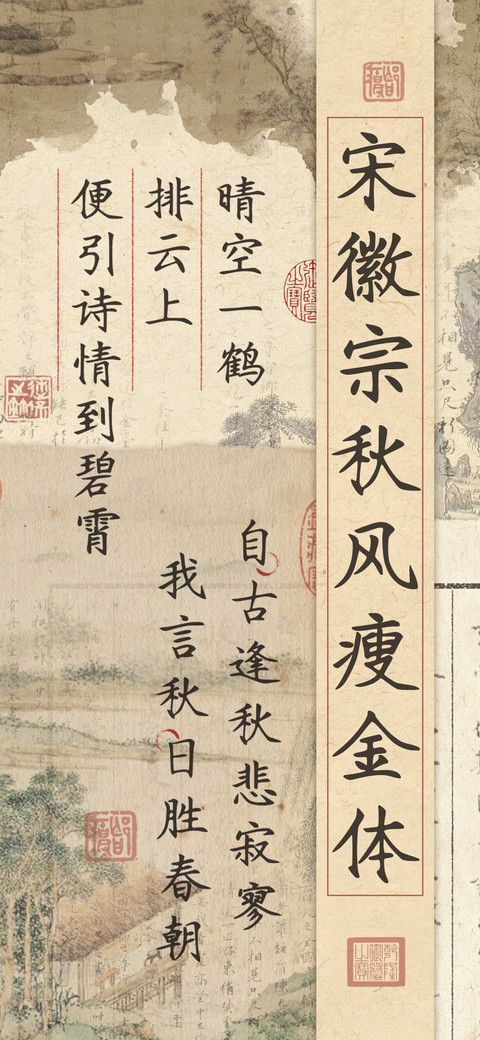 宋徽宗秋风瘦金体
自古逢秋悲寂寥
我言秋日胜春朝
晴空一鹤
排云上
便引诗情到碧霄